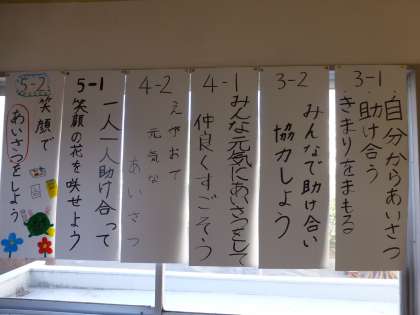 3-1
・自分からあいさつ
・助け合う
・きまりをまもる
3-2
みんなで助け合い
協力しよう
4-1
みんな元気にあいさつをして
仲良くすごそう
4-2
えがおで
元気な
あいさつ
5-1
一人一人助け合って
笑顔の花を咲せよう
5-2
笑顔で
あいさつをしよう